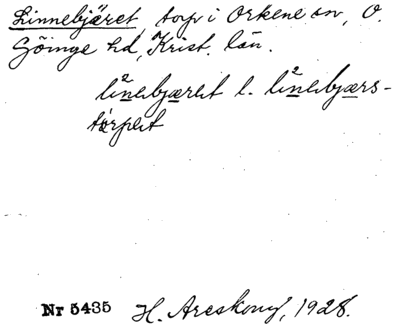 Linnebjäret torp i Örkene sn, Ö.
Göinge hd, Krist. län.
linebjæret l. linebjærs-
törpet
Nr 5435 H. Areskoug, 1928.